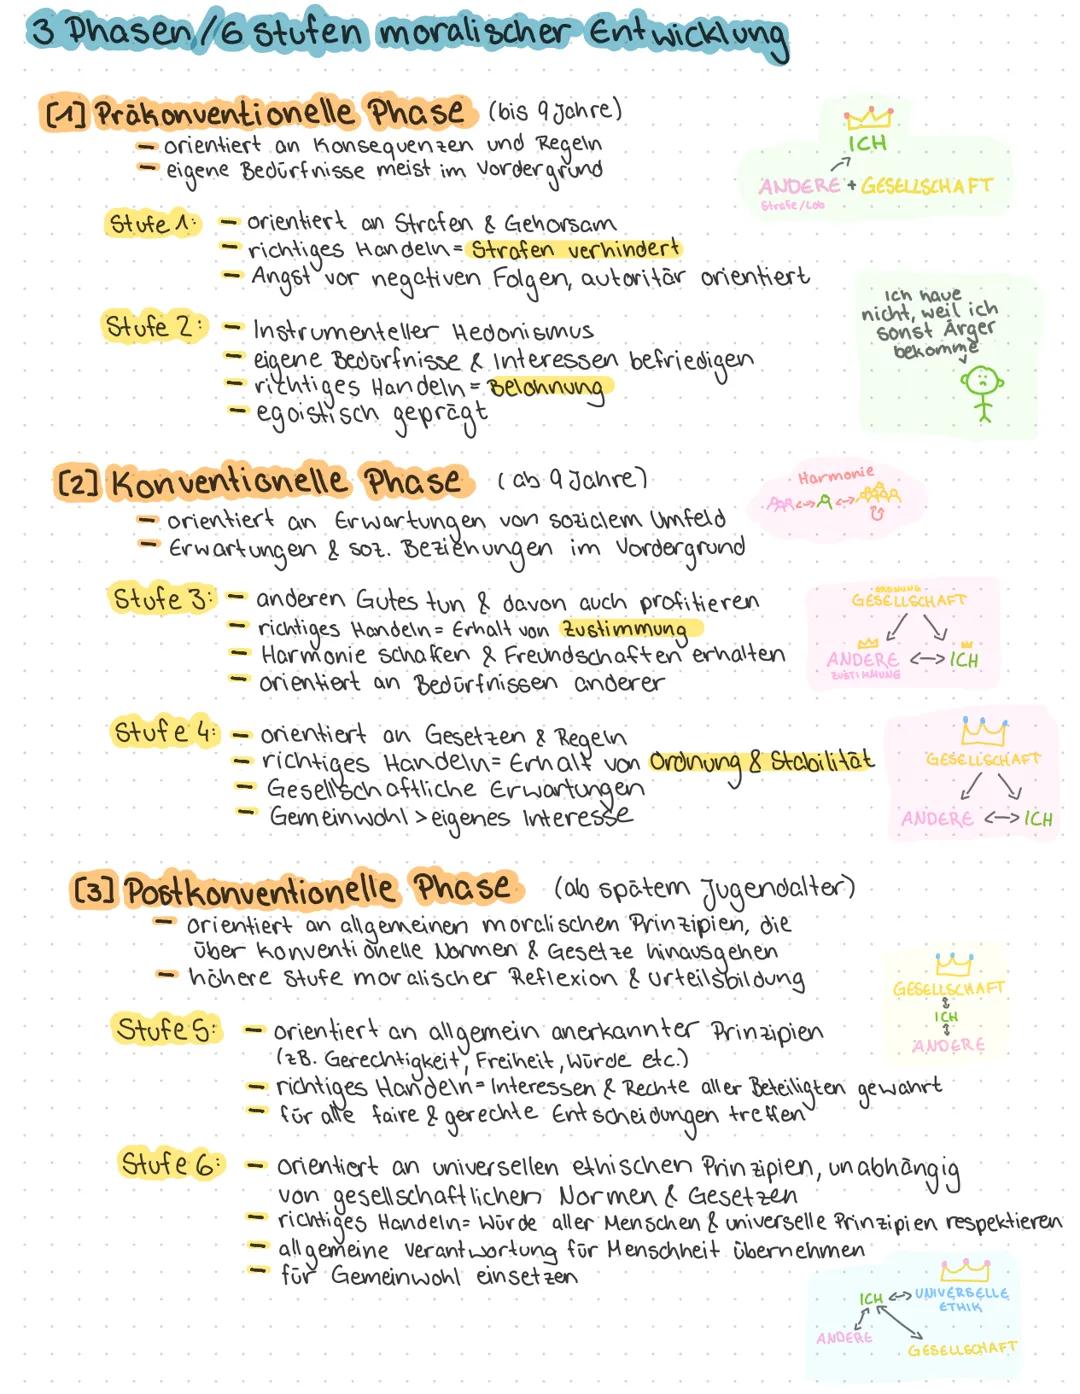 3 Phasen/6 Stufen moralischer Entwicklung
[1] Präkonventionelle Phase (bis 9 Jahre)
– orientiert an Konsequenzen und Regeln
– eigene Bedürfnisse meist im Vordergrund
ICH
ANDERE + GESELLSCHAFT
Strafe/Lob
Stufe 1: – orientiert an Strafen & Gehorsam
– richtiges Handeln = Strafen verhindert
– Angst vor negativen Folgen, autoritär orientiert
Ich haue
nicht, weil ich
sonst Ärger
bekomme
Stufe 2: – Instrumenteller Hedonismus
– eigene Bedürfnisse & Interessen befriedigen
– richtiges Handeln = Belohnung
– egoistisch geprägt
[2] Konventionelle Phase (ab 9 Jahre)
– orientiert an Erwartungen von sozialem Umfeld
– Erwartungen & soz. Beziehungen im Vordergrund
Harmonie
Stufe 3: – anderen Gutes tun & davon auch profitieren
– richtiges Handeln = Erhalt von Zustimmung
– Harmonie schaffen & Freundschaften erhalten
– orientiert an Bedürfnissen anderer
ORDNUNG
GESELLSCHAFT
ANDERE <-> ICH
ZUSTIMMUNG
Stufe 4: – orientiert an Gesetzen & Regeln
– richtiges Handeln = Erhalt von Ordnung & Stabilität
– Gesellschaftliche Erwartungen
– Gemeinwohl > eigenes Interesse
GESELLSCHAFT
ANDERE <-> ICH
[3] Postkonventionelle Phase (ab spätem Jugendalter)
– orientiert an allgemeinen moralischen Prinzipien, die
über konventionelle Normen & Gesetze hinausgehen
– höhere Stufe moralischer Reflexion & Urteilsbildung
GESELLSCHAFT
ICH
ANDERE
Stufe 5: – orientiert an allgemein anerkannter Prinzipien
(zB. Gerechtigkeit, Freiheit, Würde etc.)
– richtiges Handeln = Interessen & Rechte aller Beteiligten gewahrt
– für alle faire & gerechte Entscheidungen treffen
Stufe 6: – orientiert an universellen ethischen Prinzipien, unabhängig
von gesellschaftlichen Normen & Gesetzen
– richtiges Handeln = Würde aller Menschen & universelle Prinzipien respektieren
– allgemeine Verantwortung für Menschheit übernehmen
– für Gemeinwohl einsetzen
ICH <-> UNIVERSELLE
ETHIK
ANDERE
GESELLSCHAFT